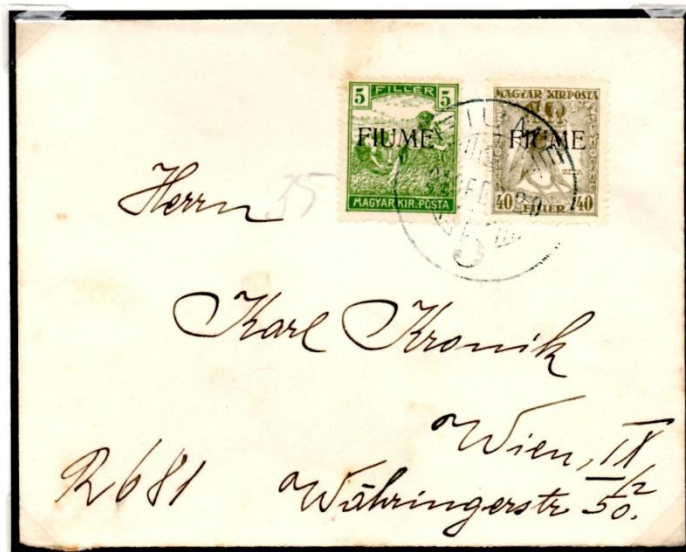 5 FILLÉR 5
FIUME
MAGYAR KIR. POSTA
MAGYAR KIR. POSTA
FIUME
40 FILLÉR 40
FIUME
35
Herrn
Karl Kronik
Wien, IX
R681 Währingerstr 5/50.